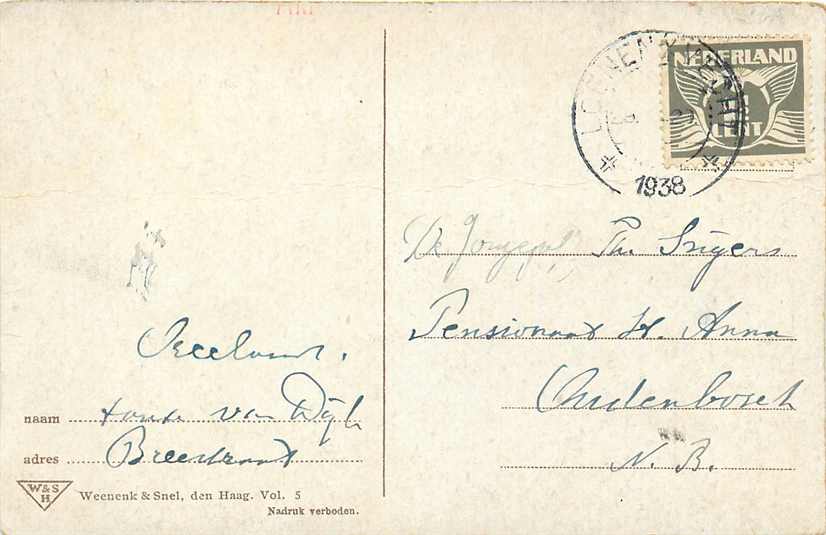 NEDERLAND
CENT
LOENEN
1938
De Jongejuf. Th. Snijers
Pensionaat St. Anna
Oudenbosch
N. B.
Vreeland.
naam tante van Dijk
adres Breestraat
W&S
H
Weenenk & Snel, den Haag. Vol. 5
Nadruk verboden.